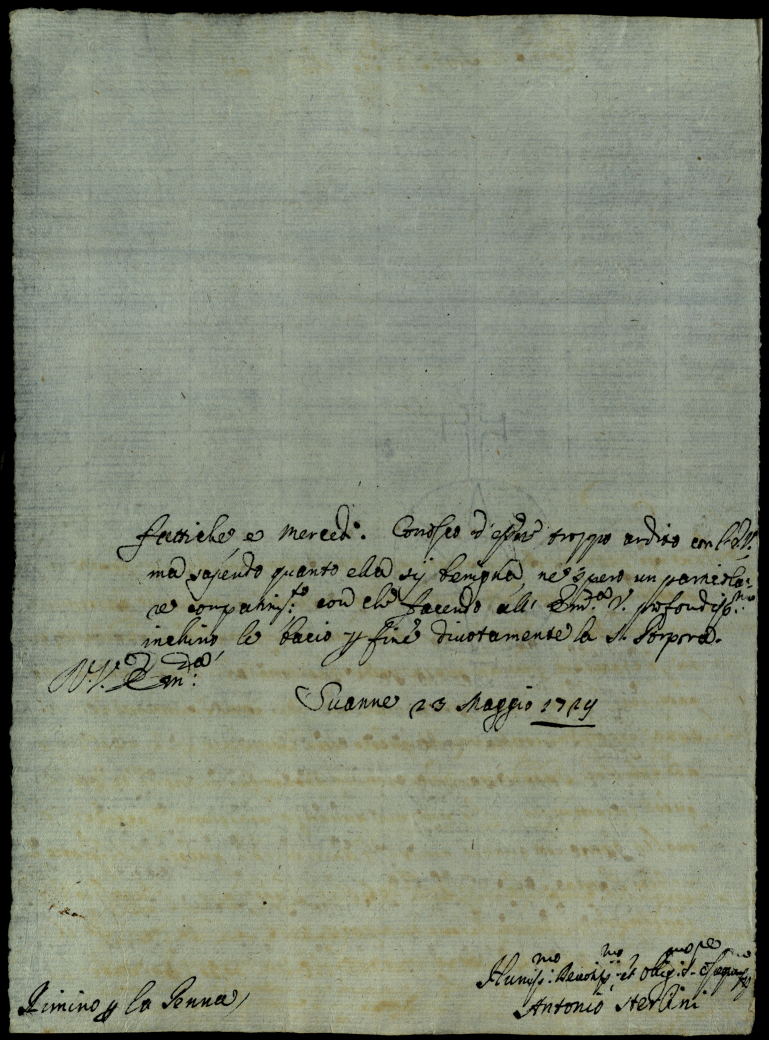 fattiche e mercedi. Conosco d'esser troppo ardito con l'E.V.
ma sapendo quanto ella sij benigna, ne spero un particola-
re compatim:to con che facendo all' Em:a V. profondiss:mo
inchino le bacio p fine divotamente la S. Porpora.
D. V. Em:za
23 Maggio 1719
Humiss:mo Devotiss:mo et oblig:mo Se:re
Antonio
Rimino p la Penna